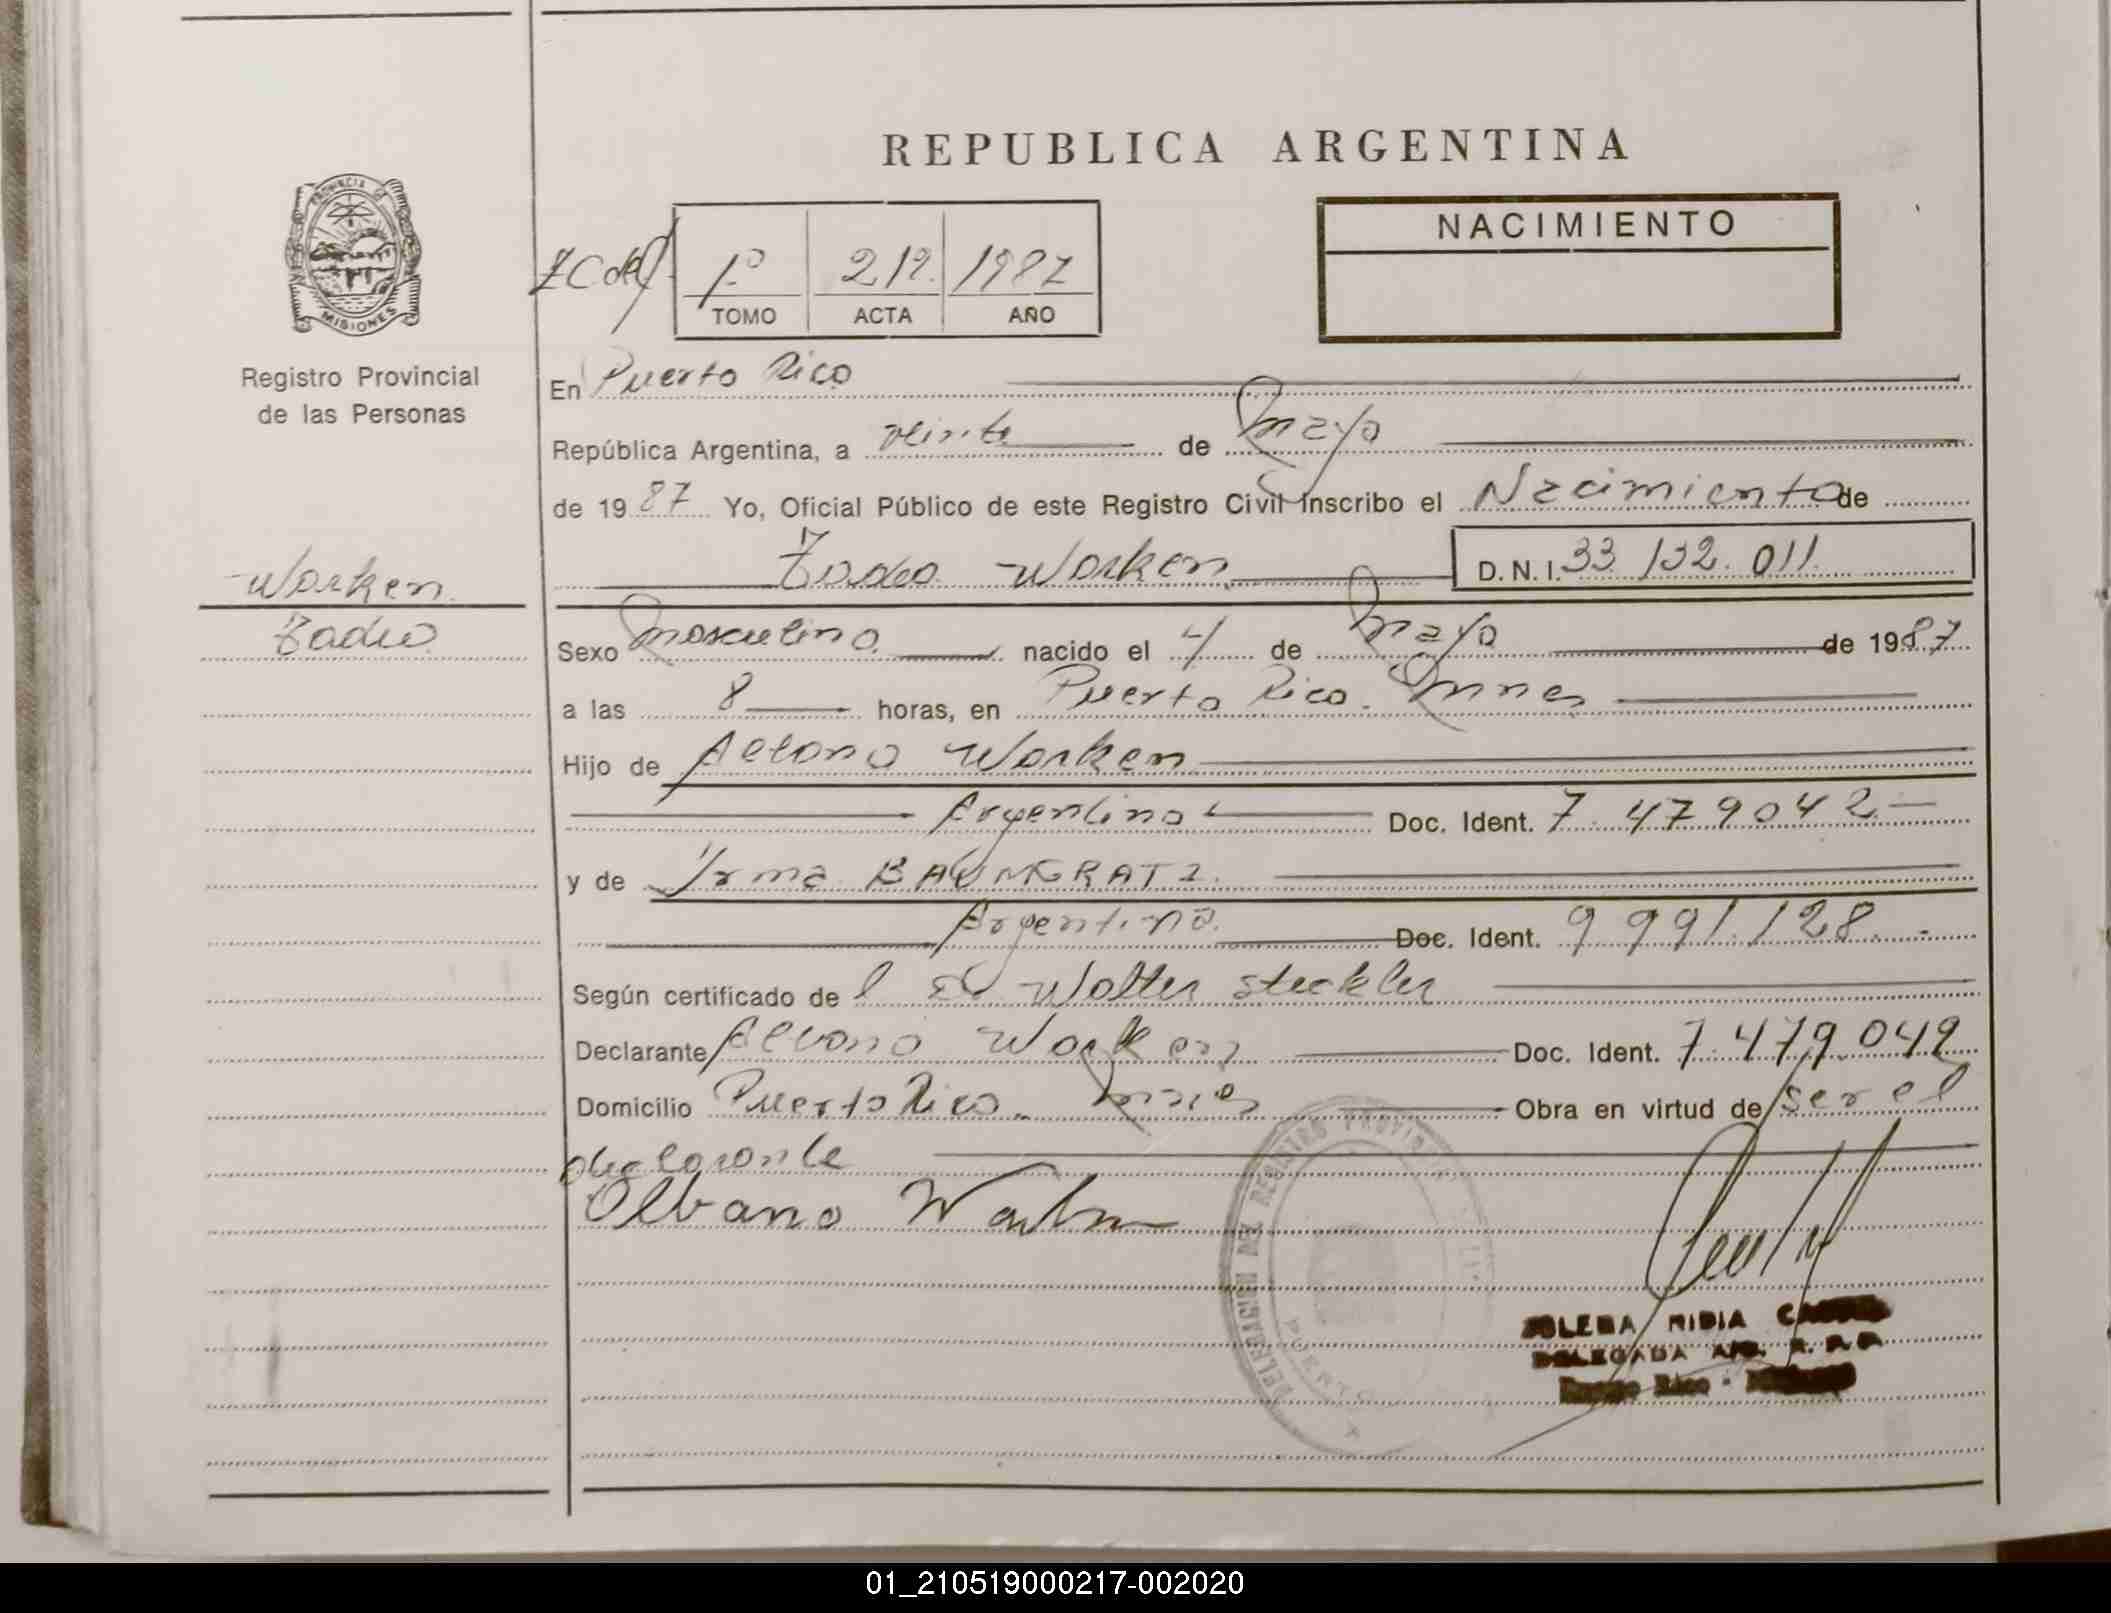 REPUBLICA ARGENTINA
PROVINCIA DE
MISIONES
Registro Provincial
de las Personas
1º 219. 1987
TOMO ACTA AÑO
NACIMIENTO
En Puerto Rico
República Argentina, a veinte de mayo
de 1987 Yo, Oficial Público de este Registro Civil inscribo el Nacimiento de
Tadeo Worken D.N.I. 33 132. 011
Worken
Tadeo
Sexo masculino nacido el 4 de mayo de 1987
a las 8 horas, en Puerto Rico. Mnes
Hijo de Albano Worken
Argentino Doc. Ident. 7.479042
y de Irma BAUMGRATZ.
Argentina. Doc. Ident. 9 991.128.-
Según certificado de l Dr Walter Steckler
Declarante Albano Worken Doc. Ident. 7.479.042
Domicilio Puerto Rico. Mnes Obra en virtud de ser el
declarante
Albano Worken
DELEGACION DEL REGISTRO PROVINCIAL
PUERTO
NIDIA
DELEGADA
Puerto Rico -
01_210519000217-002020